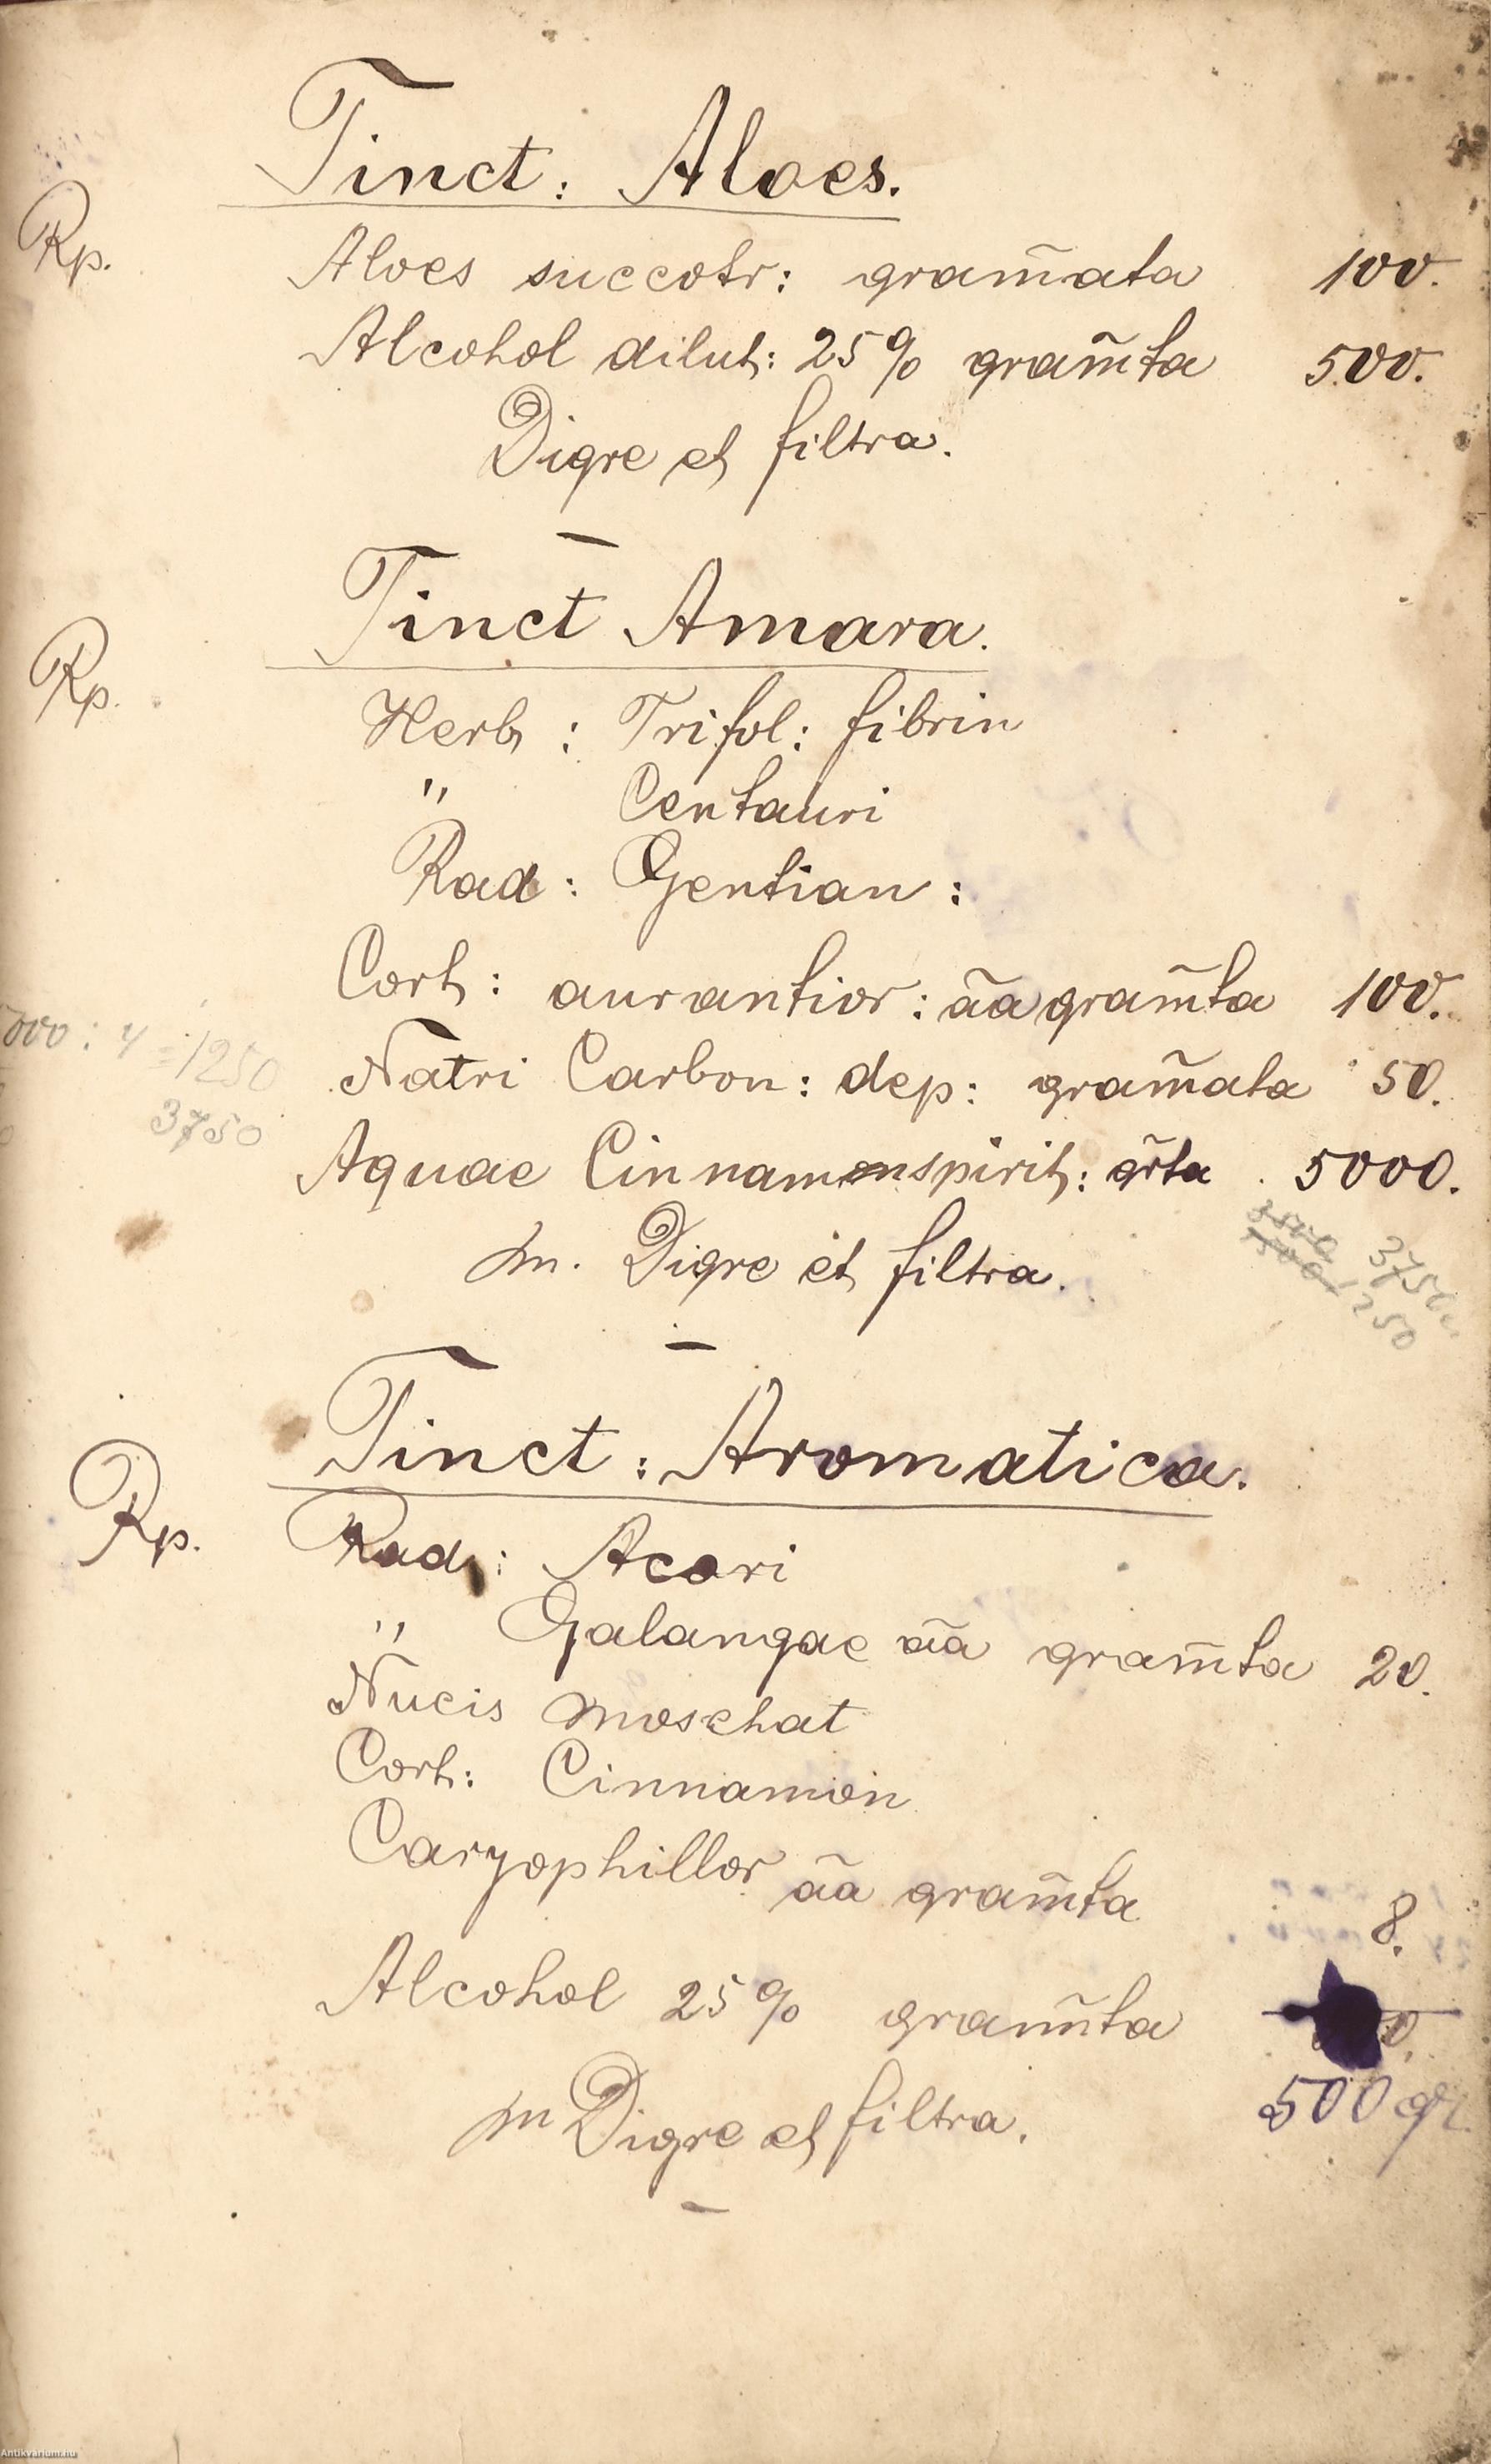 Tinct: Aloes.
Rp.
Aloes succotr: gram̄ata 100.
Alcohol dilut: 25% gram̄ta 500.
Digre et filtra.
Tinct Amara.
Rp.
Herb: Trifol: fibrin
" Centauri
Rad: Gentian:
Cort: aurantior: āa gram̄ta 100.
000: 4 = 1250
Natri Carbon: dep: gram̄ata 50.
3750
Aquae Cinnamon spirit: gr̄ta 5000.
3750
1250
m. Digre et filtra.
Tinct: Aromatica.
Rp.
Rad: Acori
" Galangae āa gram̄ta 20.
Nucis moschat
Cort: Cinnamon
Caryophillor āa gram̄ta 8.
Alcohol 25% gram̄ta
500 gr.
m Digre et filtra.
Antikvarium.hu